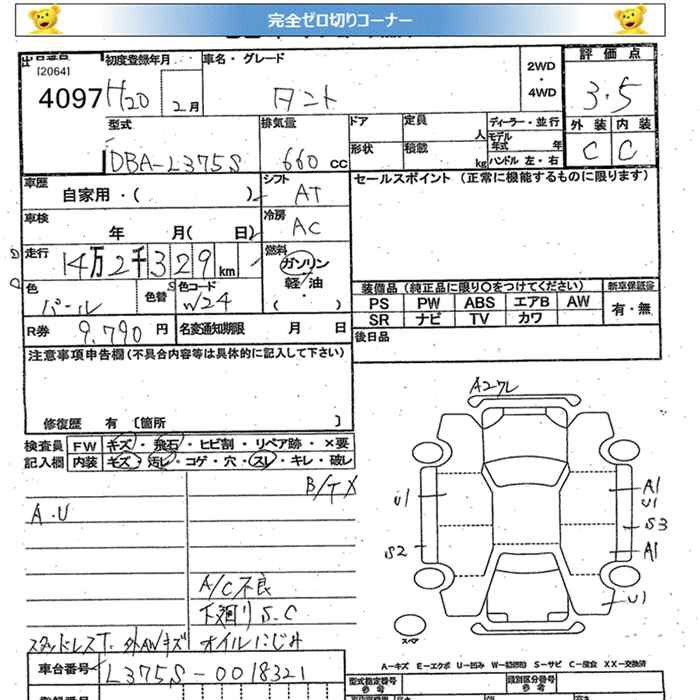 完全ゼロ切りコーナー
出品番号 初度登録年月 車名・グレード 2WD ・ 4WD 評価点
[2064]
4097 H20 2月 タント 3.5
型式 排気量 ドア 定員 人 ディーラー・並行 外装 内装
DBA-L375S 660 cc 形状 積載 kg モデル年式 年 C C
ハンドル 左・右
車歴 シフト セールスポイント (正常に機能するものに限ります)
自家用・( ) AT
車検 冷房
年 月( 日) AC
走行 燃料
14万2千329km ガソリン
軽油
色 色替 色コード ( ) 装備品(純正品に限り○をつけてください) 新車保証書
パール W24 PS PW ABS エアB AW 有・無
SR ナビ TV カワ
R券 9,790円 名変通知期限 月 日 後日品
注意事項申告欄(不具合内容等は具体的に記入して下さい)
修復歴 有 [箇所 ]
検査員 FW キズ・飛石・ヒビ割・リペア跡・×要
記入欄 内装 キズ・汚レ・コゲ・穴・スレ・キレ・破レ
B/T X
A.U
A/C不良
下廻りS.C
スタッドレスT. 外AWキズ オイルにじみ
A27レ
U1 A1
U1
S3
S2 A1
U1
スペア
A-キズ E-エクボ U-凹み S-サビ C-腐食 XX-交換済
車台番号 L375S-0018321
型式指定番号 類別区分番号